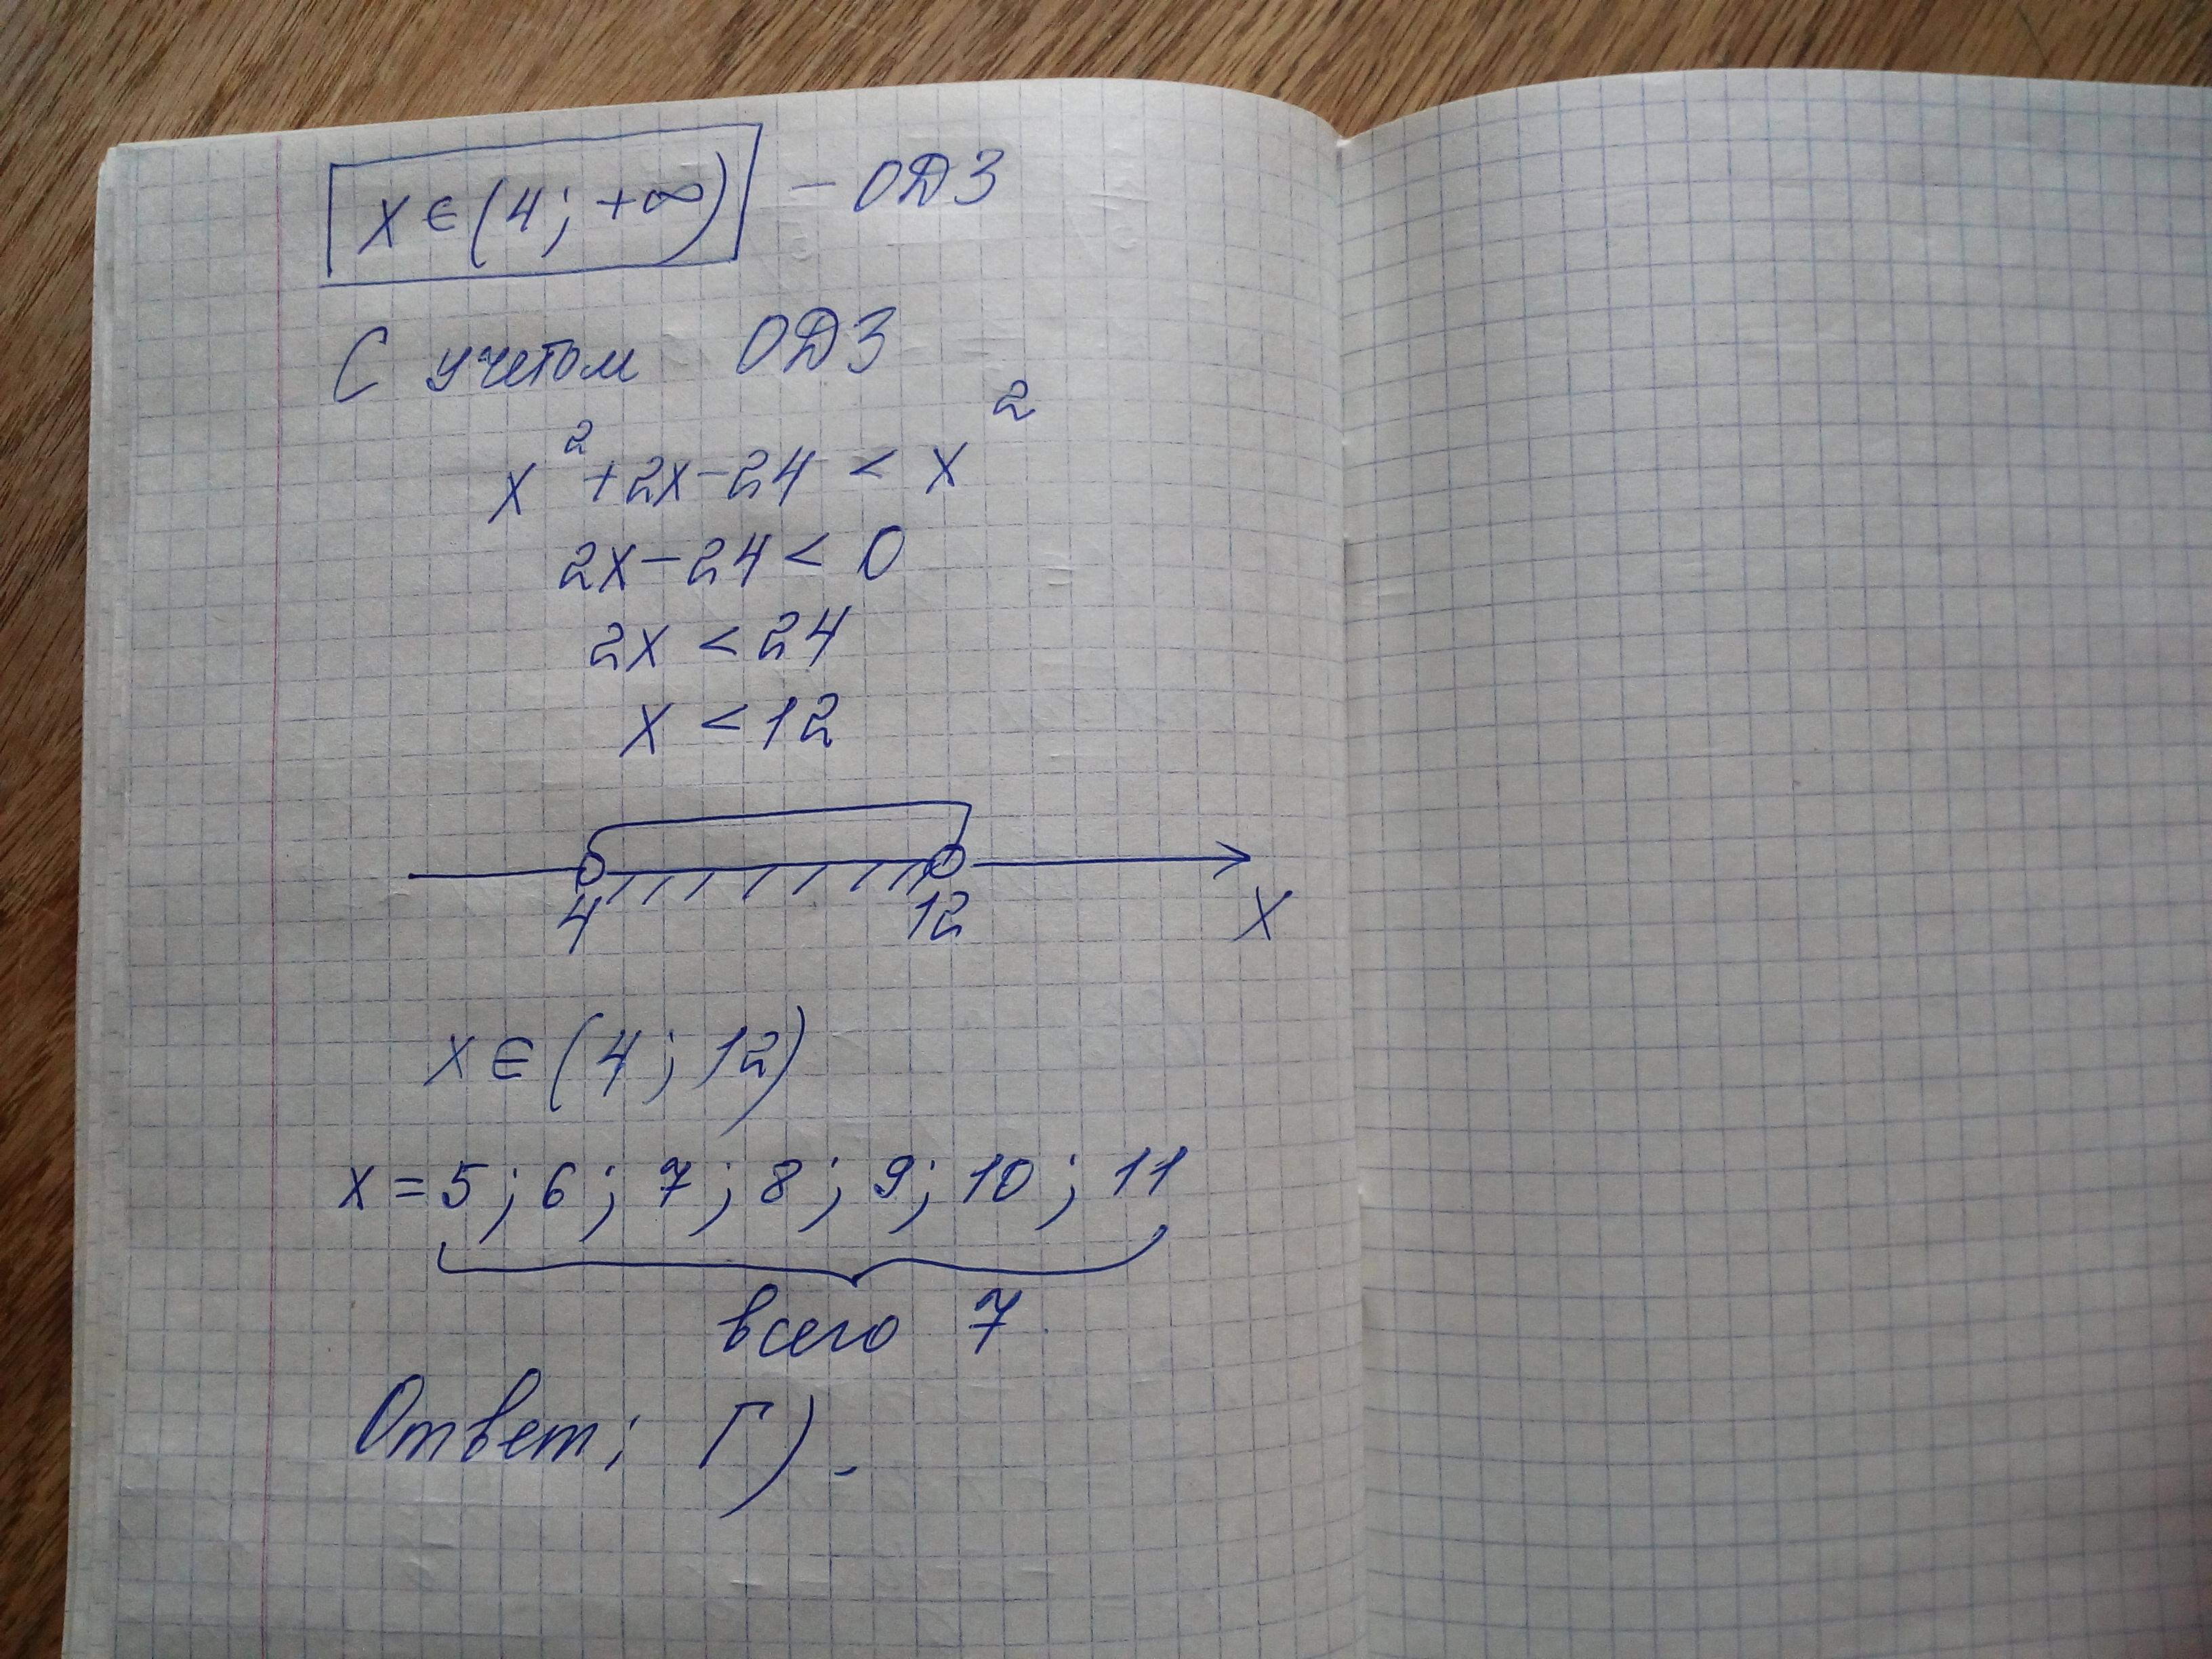 x ∈ (4; +∞) – ОДЗ
С учетом ОДЗ
x² + 2x - 24 < x²
2x - 24 < 0
2x < 24
x < 12
4 12 x
x ∈ (4; 12)
x = 5; 6; 7; 8; 9; 10; 11
всего 7
Ответ: Г).